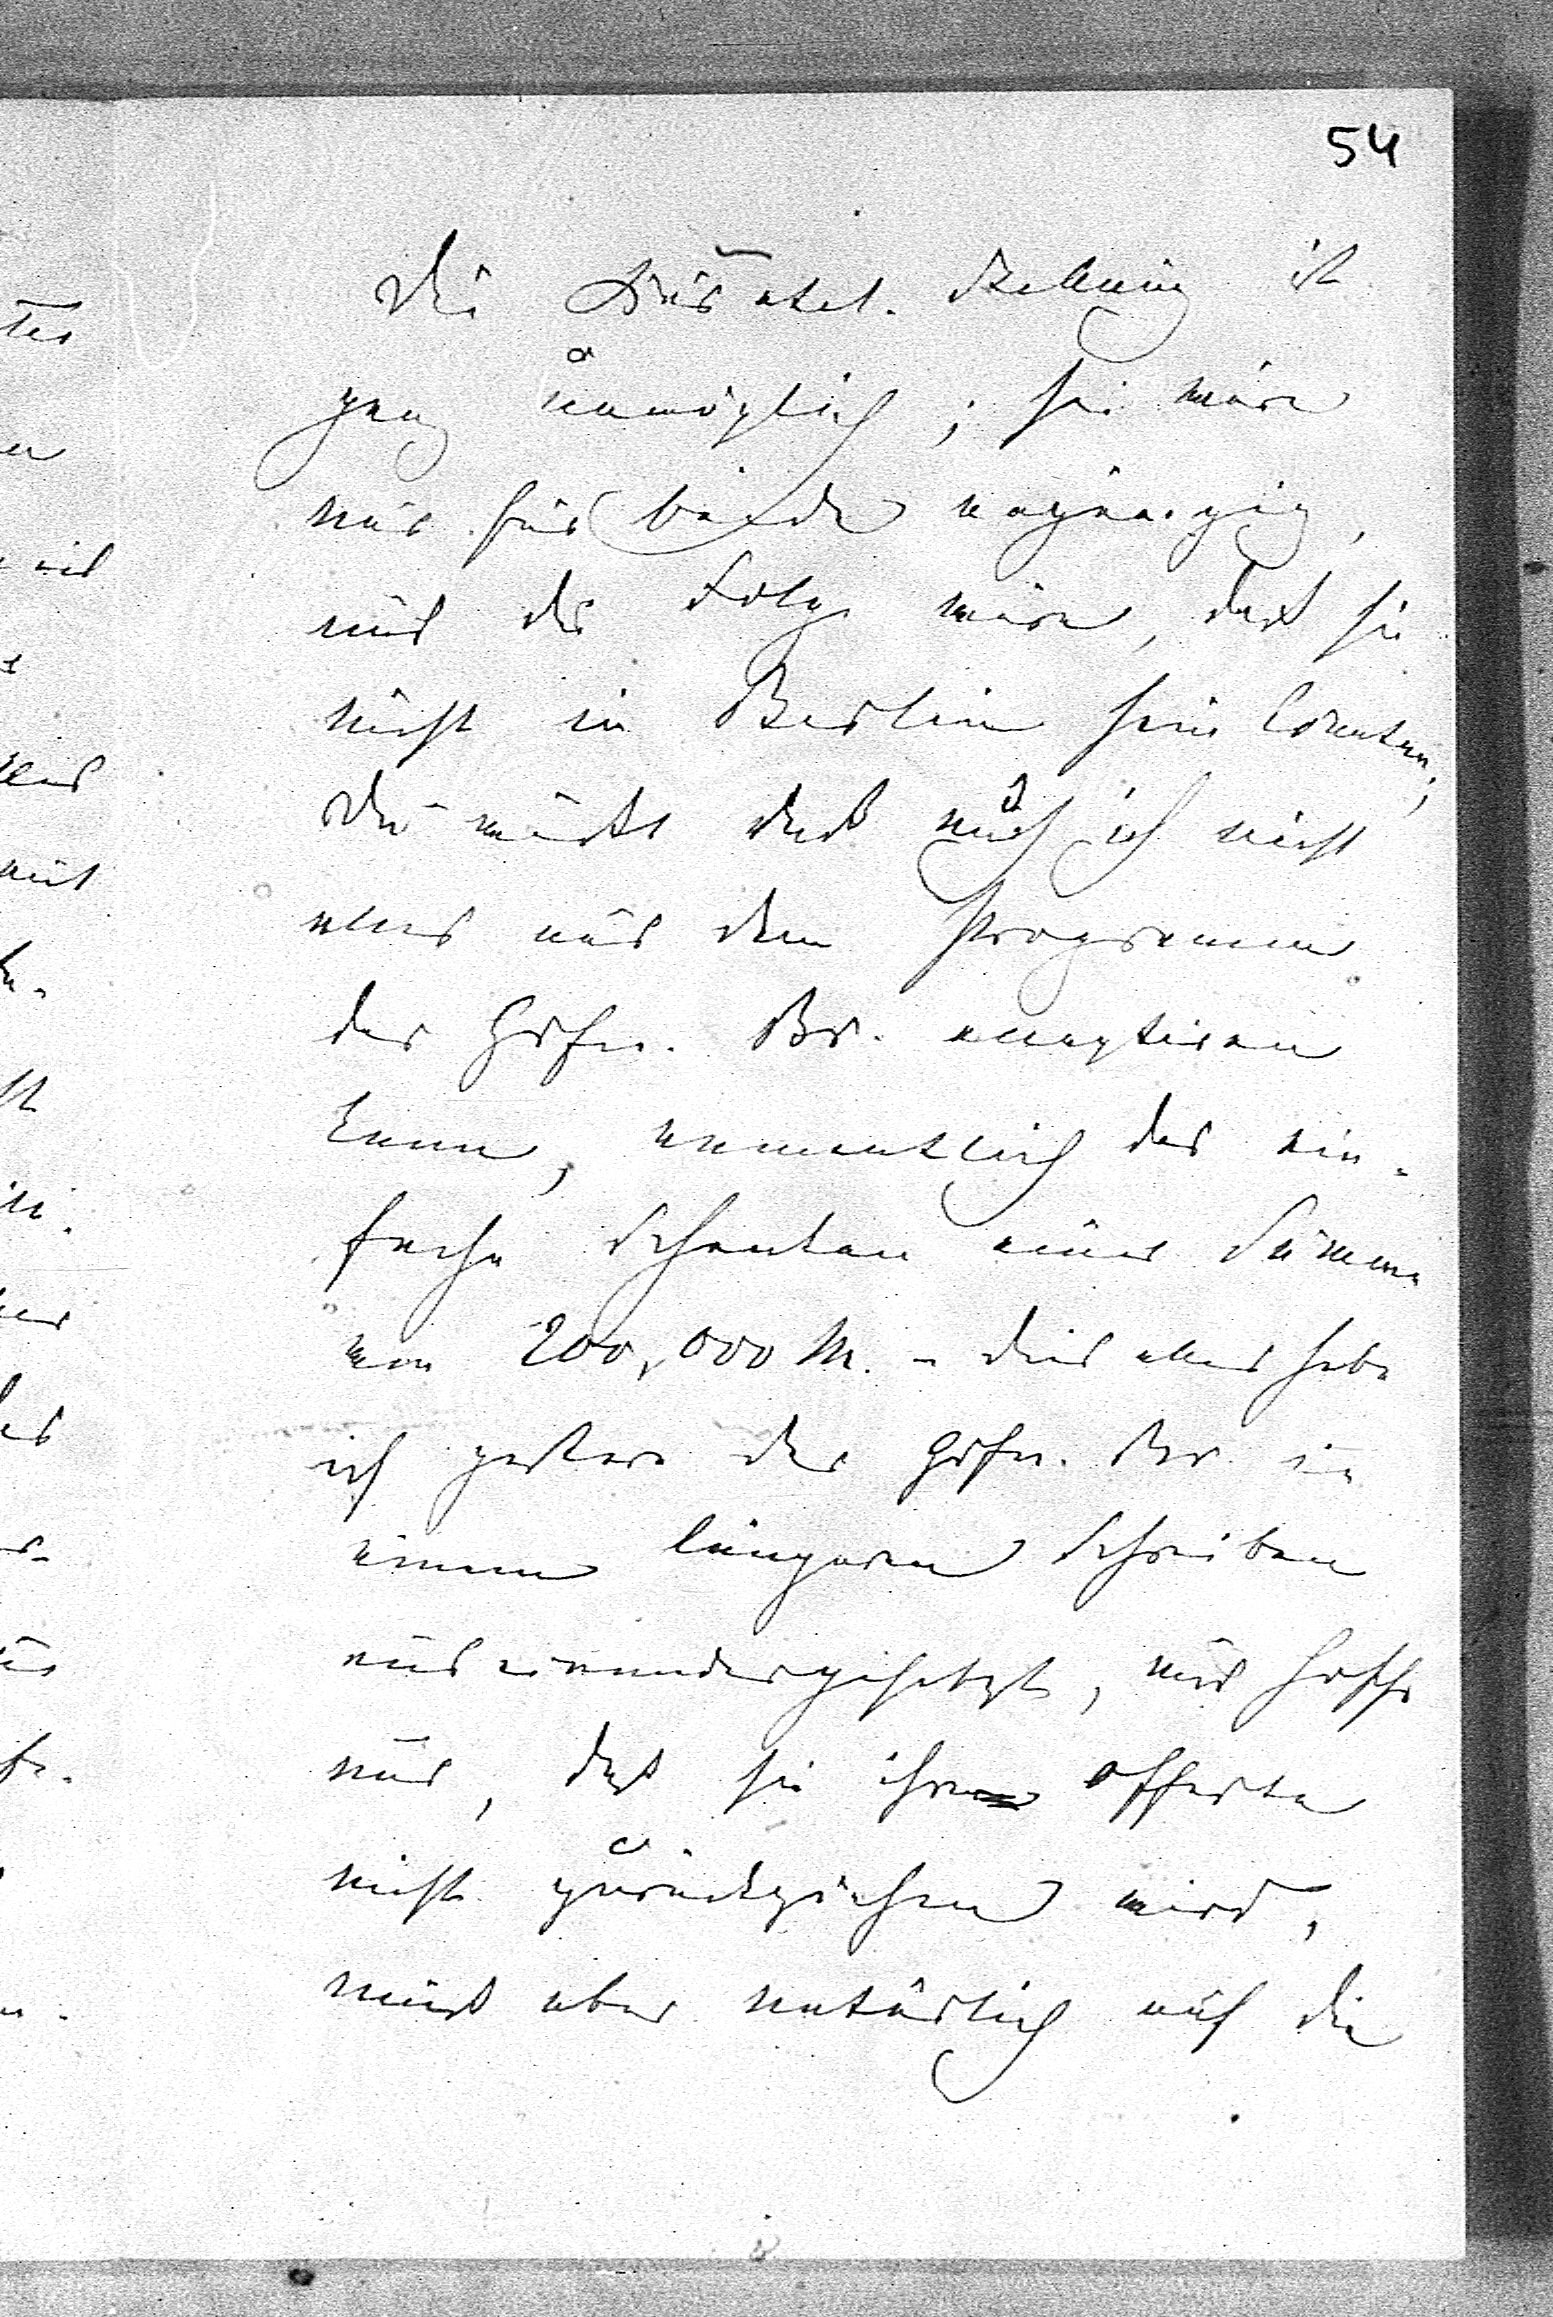 54
Die Stellung ist
ganz unmöglich; sie wäre
nur für beide
und die Folge wäre, daß sie
nicht in Berlin sein könnten;
Du weißt daß auch ich nicht
alles aus dem Programm
der Gräfin. Br. acceptiren
kann, namentlich das ein-
fache Schenken einer Summe
von 200,000 M. - dies alles habe
ich gestern der Gräfin. Br. in
einem längeren Schreiben
auseinandergesetzt, und hoffe
nur, daß sie ihre Offerte
nicht zurückziehen wird,
muß aber natürlich auf die